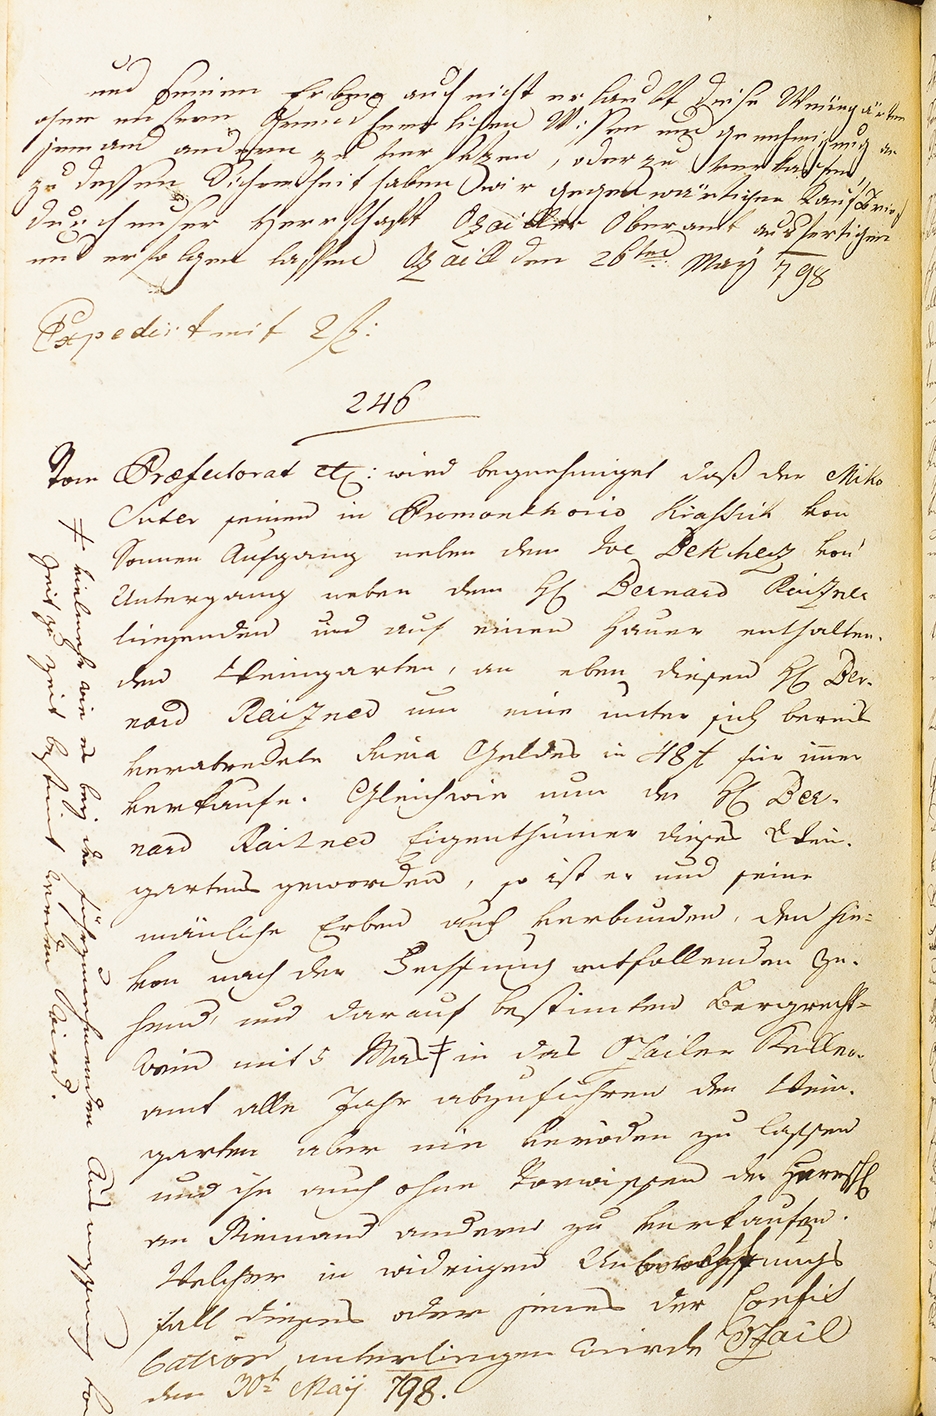 und seinen Erben auch nicht erlaubt diese Weingärten
ohne unsern Grundherrlichen Wissen und genehmigung an
jemand andern zu versetzen, oder zu verkaufen,
zu dessen Sicherheit haben wir gegenwärtigen Kauf Brief
durch unser Herrschaft Ozailer Oberamt ausfertigen
und erfolgen lassen Ozaill den 26ten May 798
Expedirt mit 2 f:
246
Vom Præfectorat etc: wird begnehmiget daß der Miko
Suter seinen in Promonthorio Kraschit von
Sonnen Aufgang neben dem Ive Bekcherz von
Untergang neben dem H Bernard Raizner
liegenden und auf einen Hauer enthalten-
den Weingarten, an eben diesen H Ber-
nard Raizner um eine unter sich bereits
verabredete Suma Geldes in 48 f für immer
verkaufe. Gleichwie nun der H Ber-
nard Raizner Eigenthümer dieses Wein-
gartens geworden, so ist er und seine
mänliche Erben auch verbunden, den hie-
von nach der Fechsung entfallenden Ze-
hend, und darauf bestimten Bergrecht-
wein mit 5 Mas ǂ in das Ozailer Keller-
amt alle Jahr abzuführen den Wein-
garten aber nie veröden zu lassen
und ihn auch ohne Vorwissen der Herrsch
an Niemand andern zu verkaufen.
Welcher in widrigen Unterlassungs
fall dieses oder jenes der Confis
cation unterliegen würde Ozail
den 30t Maÿ 798.
ǂ vielmehr wie es bey der fürzunehmenden Ausmessung von
Zeit zu Zeit bestimt werden wird.